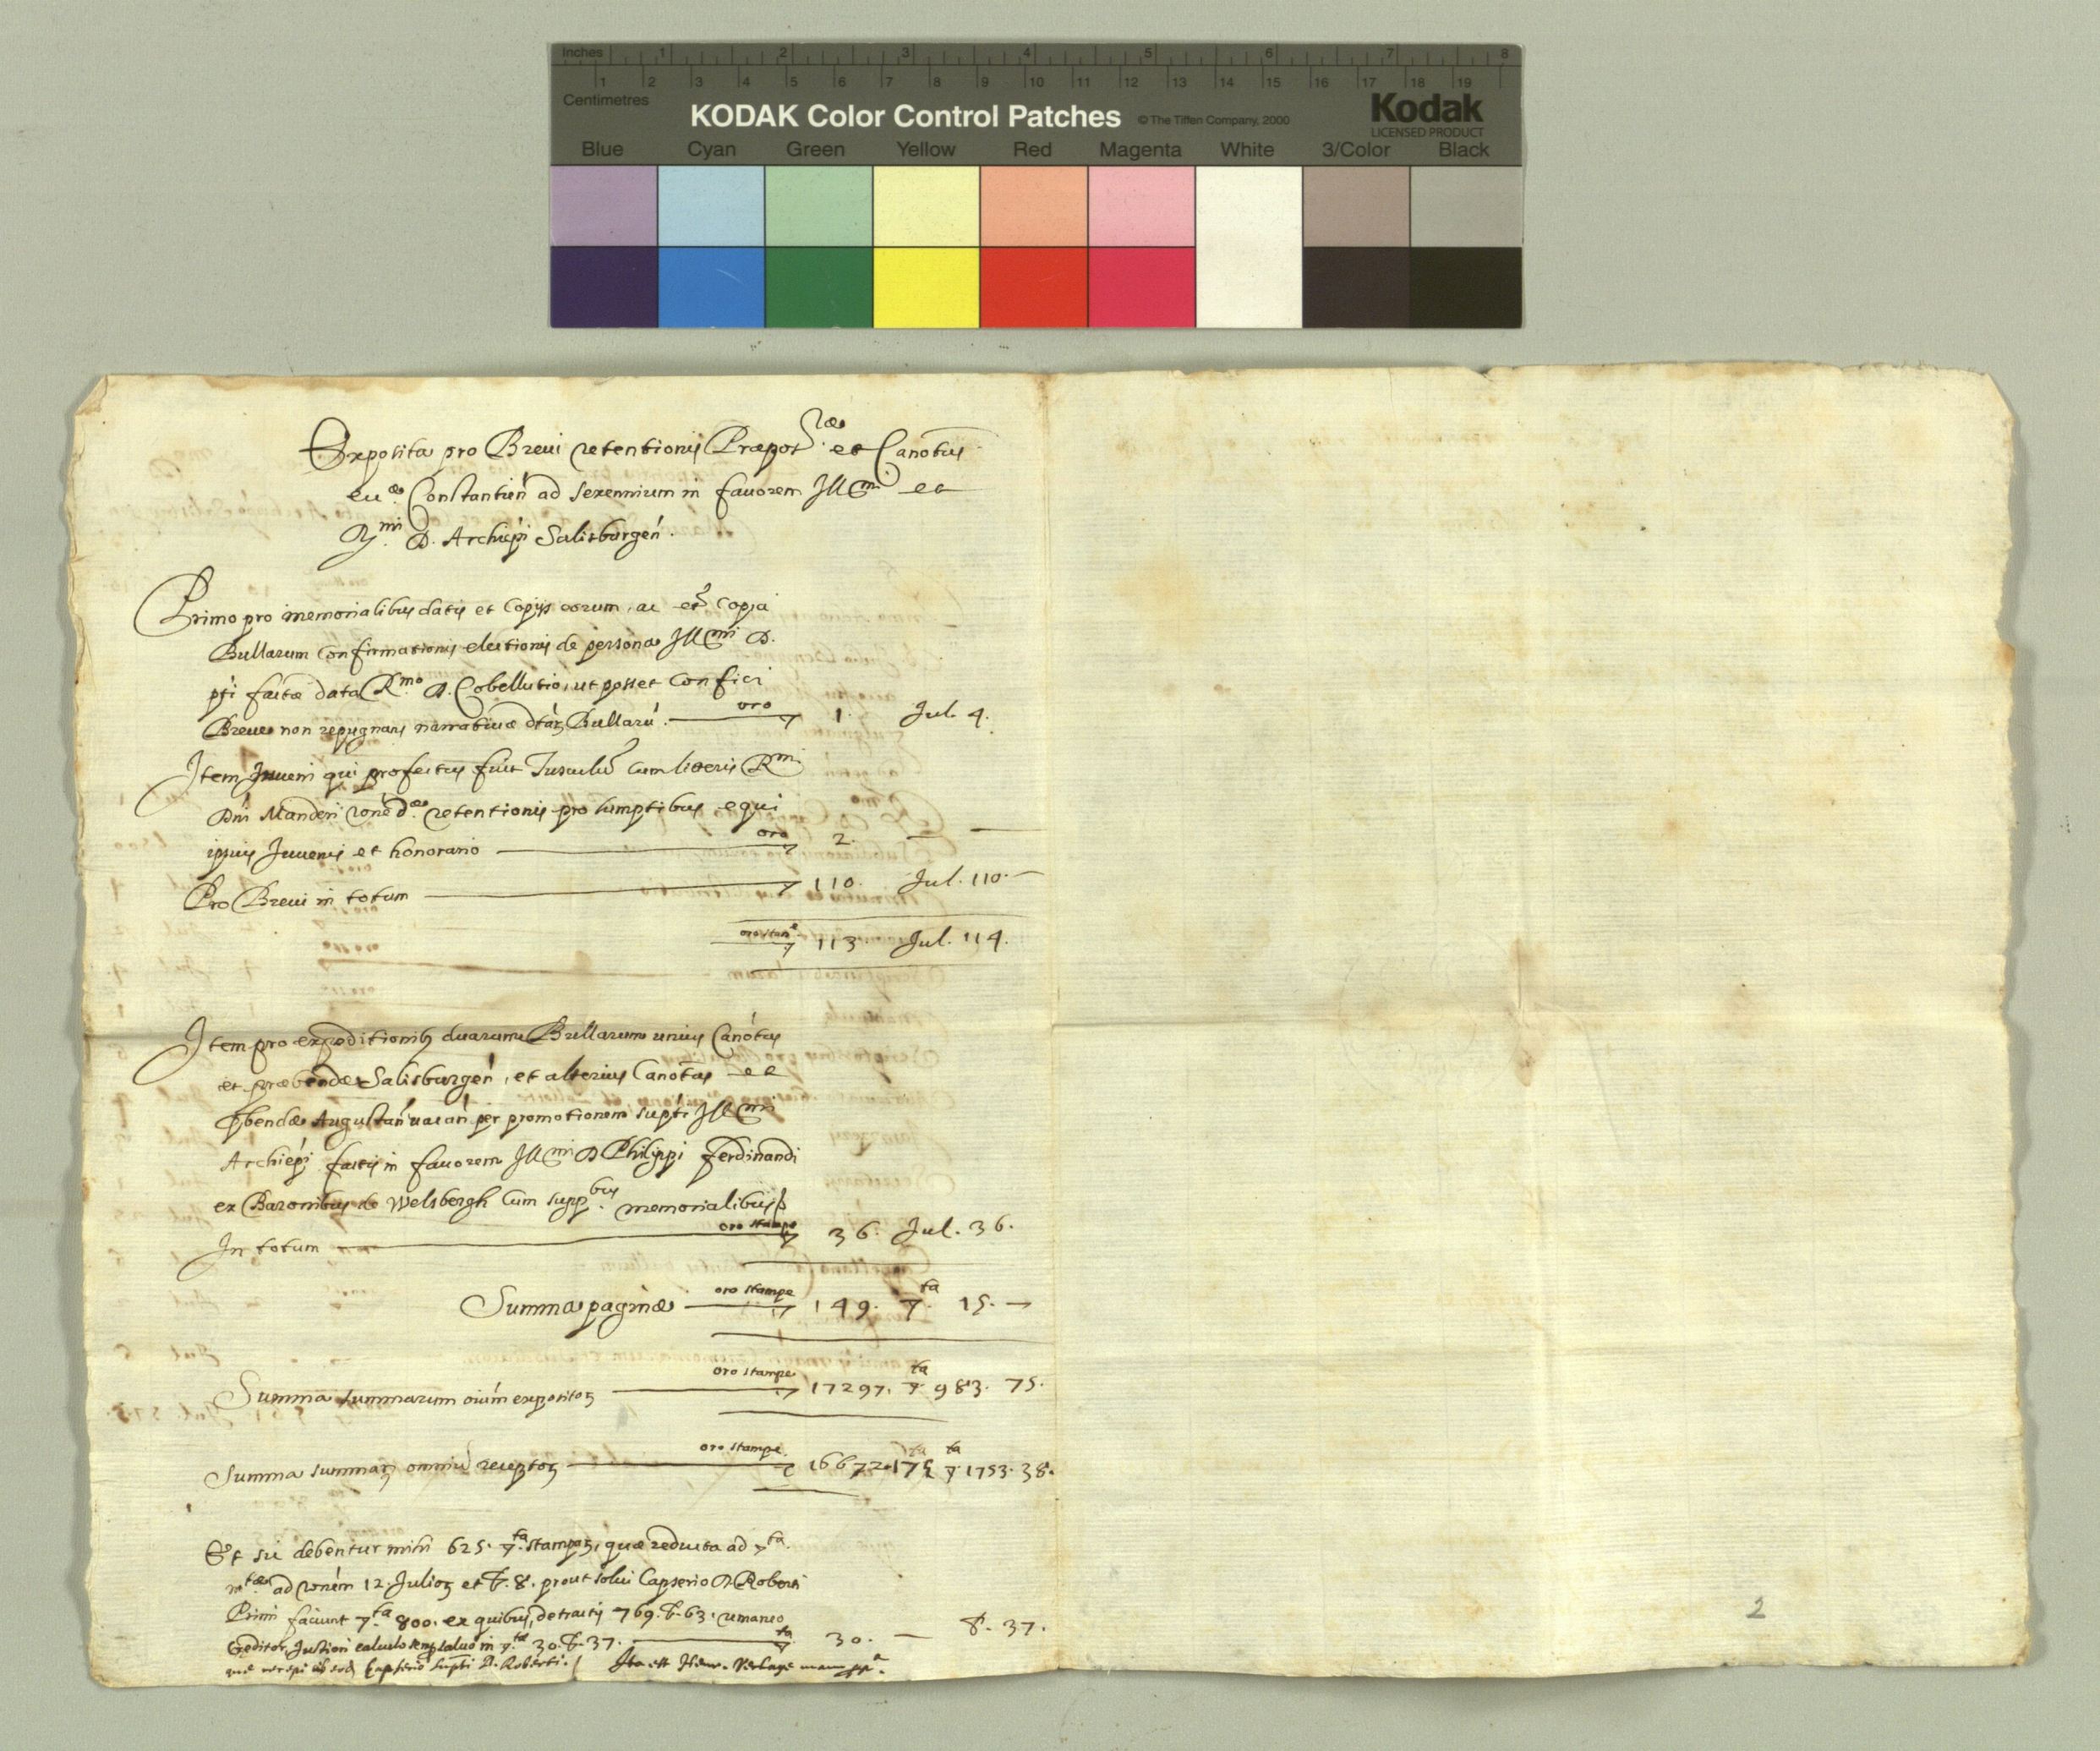 Inches 1 2 3 4 5 6 7 8
1 2 3 4 5 6 7 8 9 10 11 12 13 14 15 16 17 18 19
Centimetres
KODAK Color Control Patches © The Tiffen Company, 2000 Kodak
LICENSED PRODUCT
Blue Cyan Green Yellow Red Magenta White 3/Color Black
Exposita pro Breui retentionis Præpos.ræ et Canotus
Constantien ad sexennium in fauorem Illmi et
Rmi D. Archiepi Salisburgen.
Primo pro memorialibus datis et copijs eorum, ac et copia
Bullarum confirmationis electionis de persona Illmi D.
pti factæ data Rmo D. Cobellutio, ut posset confici
Breue non repugnans narratiuæ dtarz Bullarū. oro 1. Jul. 4.
Item Juueni qui profectus fuit Tusculū cum literis Rmi
Dni Manderi rone dæ retentionis pro sumptibus equi
ipsius Juuenis et honorario oro 2. —
Pro Breui in totum 110. Jul. 110.
oro stam 113 Jul. 114.
Item pro expeditionibz duarum Bullarum unius Canotus
et præbendæ Salisburgen, et alterius Canotus et
pbendæ Augustan uacan per promotionem supti Illmi
Archiepi factis in fauorem Illmi D Philippi ferdinandi
ex Baronibus de Welsbergh cum suppbus memorialibus
In totum oro stampe 36. Jul. 36.
Summa paginæ oro stampe 149. ta 15.
Summa summarum oium expositorz oro stampe 17297. ta 983. 75.
Summa summarz omniū receptorz oro stampe 16672. ta 1753. 38.
Et sic debentur mihi 625. ta stamparz, quæ reducta ad ta
mtæ ad ronem 12. Juliorz et b. 8. prout solui Capserio D Roberti
Primi faciunt ta 800. ex quibus detractis 769. b. 63. remaneo
Creditor, Justiori calculo semp saluo in ta 30. b. 37. ta 30. — b. 37.
Capserio supti D. Roberti. Ita est Henr. Verlage manu ppa.
2